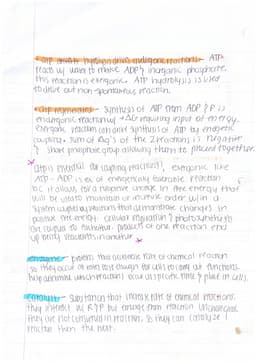 • ATP drives endergonic reactions - ATP
reacts w/ water to make ADP & inorganic phosphate.
this reaction is exergonic. ATP hydrolysis is used
to drive out non-spontaneous reaction.
• ATP regenerated - synthesis of ATP from ADP & P is
endergonic reaction w/ +ΔG requiring input of energy.
exergonic reaction can drive synthesis of ATP by energetic
coupling. sum of ΔG's of the 2 reactions is negative
& share phosphate group allowing them to proceed together.
ATP is essential for coupling reactions, exergonic like
ATP → ADP is ex of energetically favorable reaction
bc it allows for a negative change in free energy that
will be used to maintain or increase order w/in a
system coupled by reactions that demonstrate changes in
positive free energy. cellular respiration & photosynthesis
can be coupled together. product of one reaction end
up being reactants in another
enzyme - protein that accelerate rate of chemical reaction
so they occur at rates fast enough for cells to carry out functions.
help determine which reactions occur at specific time & place in cells.
catalysts - substances that increase rate of chemical reactions.
they interact w/ R & P but emerge from reaction unchanged
they are not consumed in reaction, so they can catalyze 1
reaction then the next.